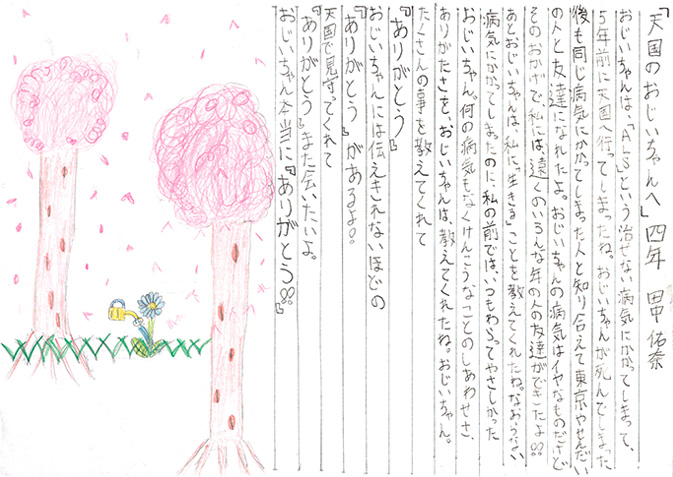 「天国のおじいちゃんへ」四年 田中 佑奈
おじいちゃんは、「ALS」という治せない病気にかかってしまって、
5年前に天国へ行ってしまったね。おじいちゃんが死んでしまった
後も同じ病気にかかってしまった人と知り合えて東京やせんだい
の人と友達になれたよ。おじいちゃんの病気はイヤなものだけど
そのおかげで、私には、遠くのいろんな年の人の友達ができたよ!!
あとおじいちゃんは、私に「生きる」ことを教えてくれたね。なおらない
病気にかかってしまったのに、私の前では、いつもわらってやさしかった
おじいちゃん。何の病気もなくけんこうなことのしあわせさ、
ありがたさを、おじいちゃんは、教えてくれたね。おじいちゃん。
たくさんの事を教えてくれて
『ありがとう』
おじいちゃんには伝えきれないほどの
『ありがとう』があるよ!!
天国で見守ってくれて
『ありがとう』また会いたいよ。
おじいちゃん本当に『ありがとう!!』